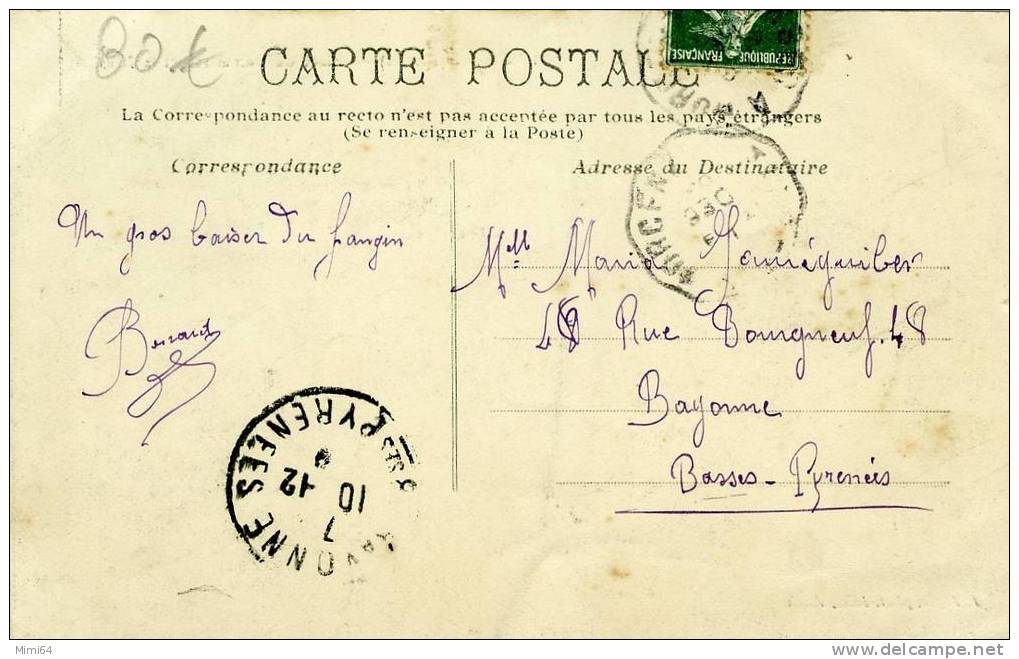 80 €
CARTE POSTALE
REPUBLIQUE FRANÇAISE
La Correspondance au recto n'est pas acceptée par tous les pays étrangers
(Se renseigner à la Poste)
Correspondance
Adresse du Destinataire
Un gros baiser du frangin
MORCENX
Melle Maria
48 Rue Bourgneuf. 48
Bayonne
Basses-Pyrenées
BAYONNE
BSES PYRENEES
7
10 - 12
Mimi64
www.delcampe.net